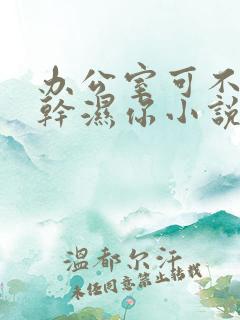 办公室可不
幹濕你小說
温都尔汗
未任同意禁止转载